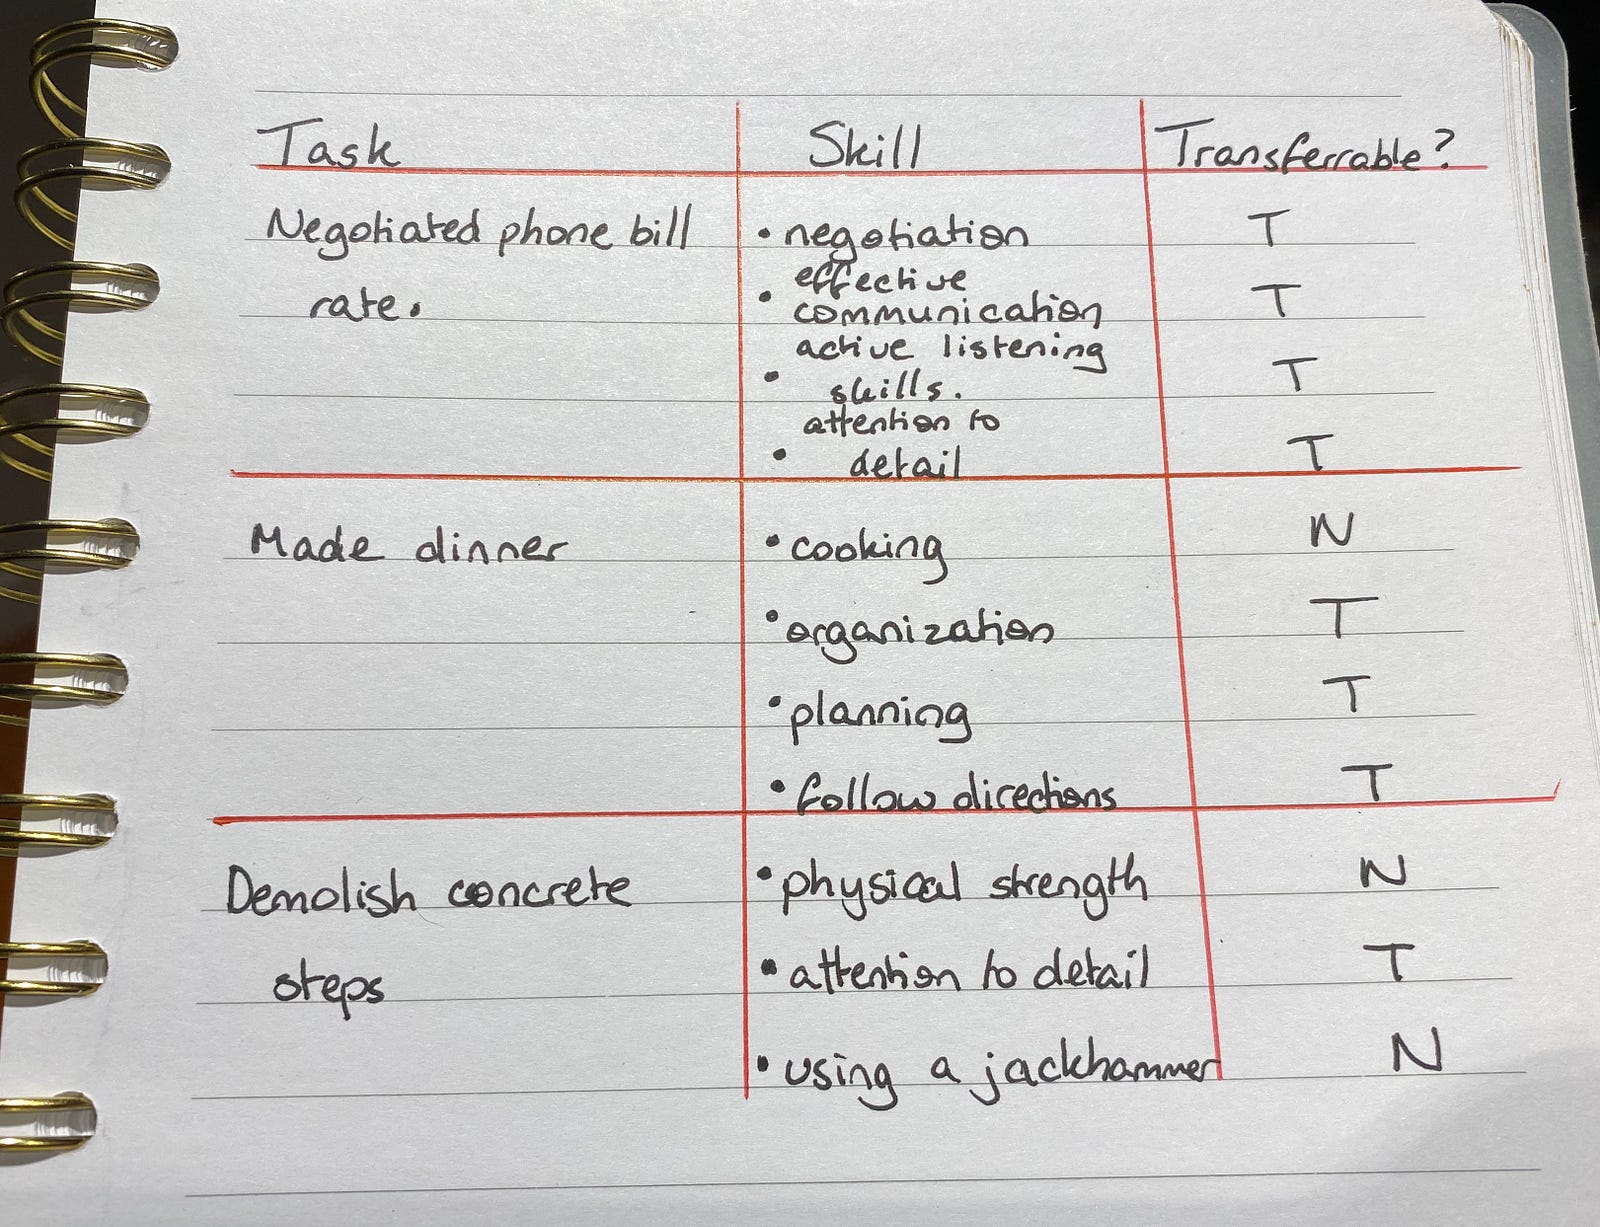 Task Skill Transferrable?
Negotiated phone bill • negotiation T
effective
rate. • communication T
active listening
• skills. T
attention to
• detail T
Made dinner • cooking N
• organization T
• planning T
• follow directions T
Demolish concrete • physical strength N
steps • attention to detail T
• using a jackhammer N